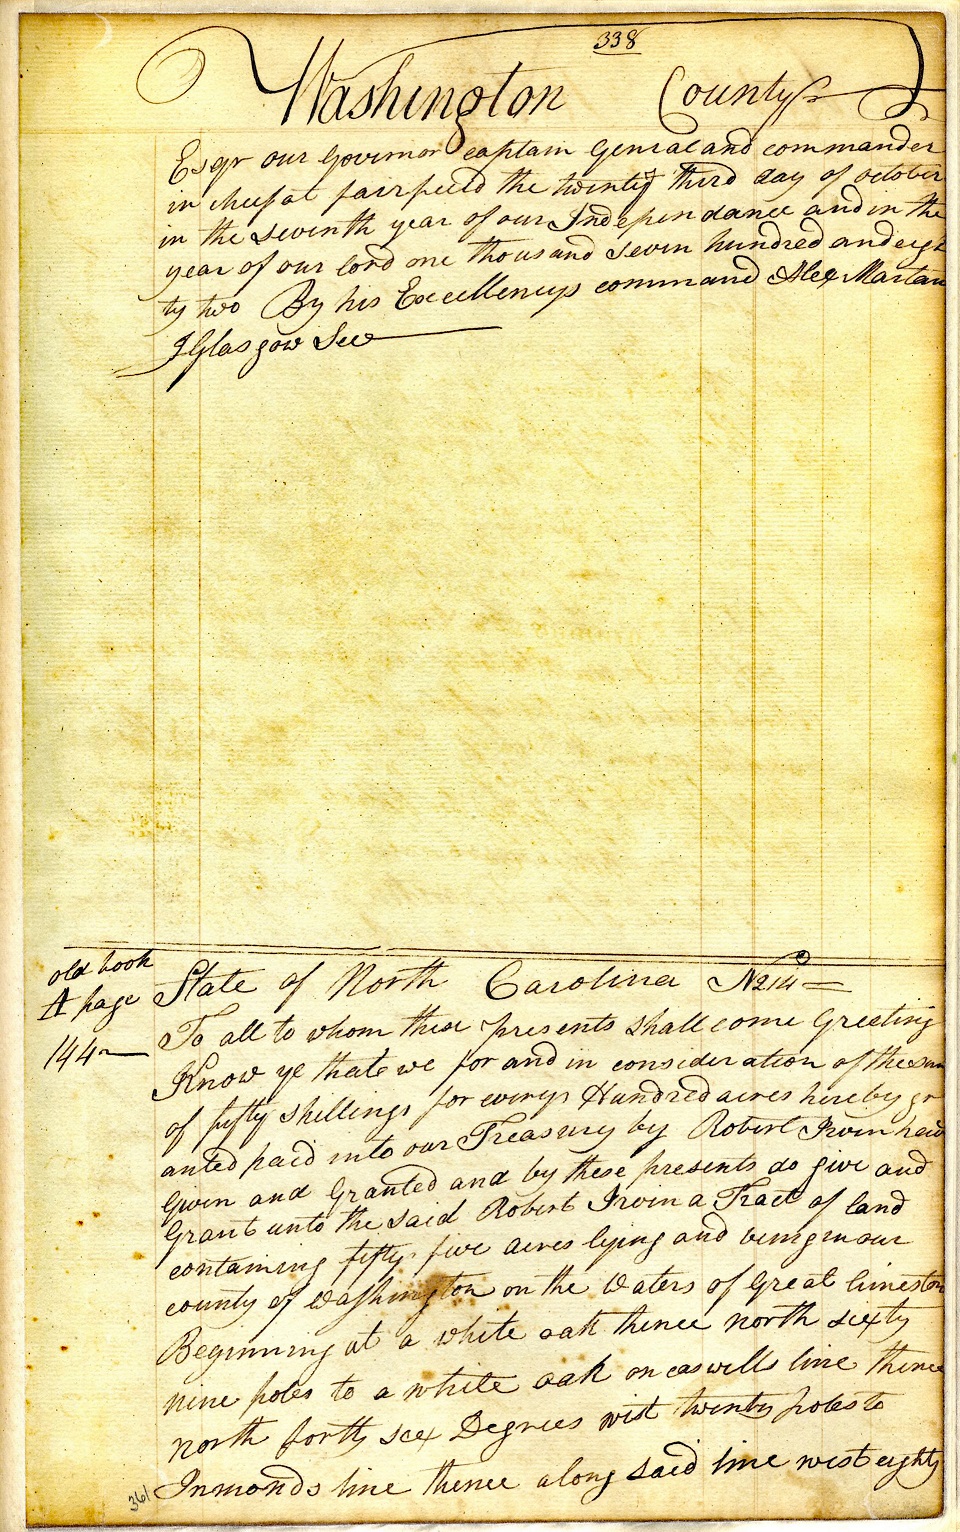 338
Washington County
Esqr our Govirnor captain Genral and commander
in cheif at fairfield the twenty third day of october
in the seventh year of our Independance and in the
year of our lord one thousand seven hundred and eigh
ty two By his Excellencys command Alex Martan
J Glasgow Sec
old book
A page
144
State of North Carolina No 214
To all to whom these presents shall come Greeting
Know ye that we for and in consideration of the sum
of fifty shillings for everys Hundred acres hereby gr
anted paid into our Treasury by Robert Irvin have
Given and Granted and by these presents do give and
Grant unto the said Robert Irvin a Tract of land
containing fifty five acres lying and being in our
county of Washington on the Waters of Great limeston
Beginning at a white oak thence north sixty
nine poles to a white oak on caswells line thence
north forty six Degrees wist twenty poles to
Inmonds line thence along said line west eighty
361